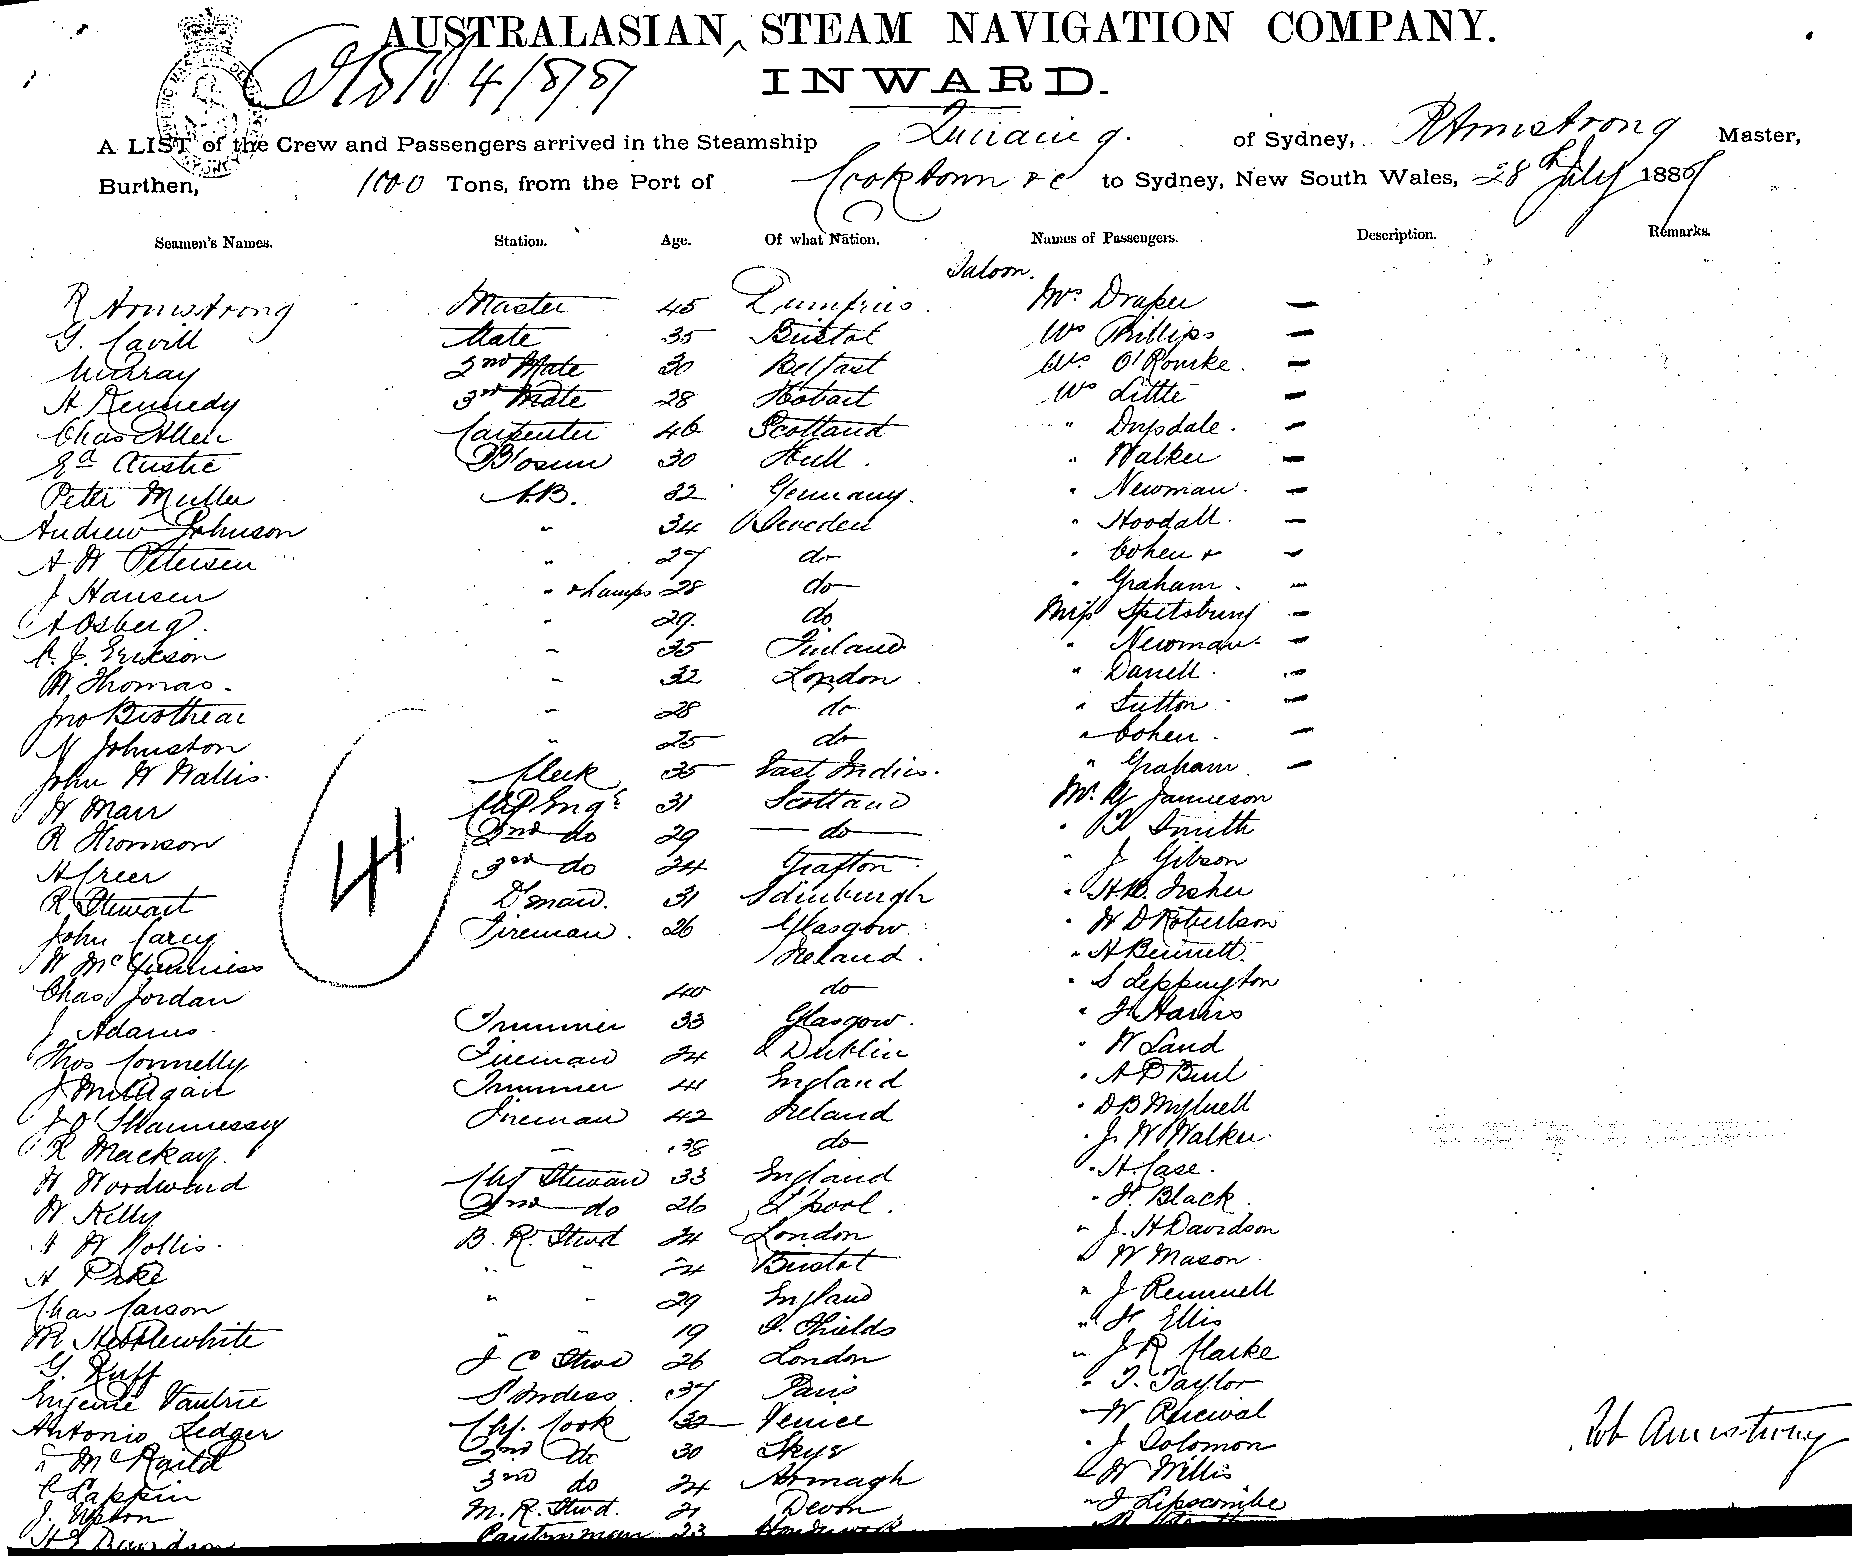 AUSTRALASIAN STEAM NAVIGATION COMPANY.
INWARD.
A LIST of the Crew and Passengers arrived in the Steamship of Sydney, R Armstrong Master,
Burthen, 1000 Tons, from the Port of Cooktown &c to Sydney, New South Wales, 28th July 188
Seamen's Names. Station. Age. Of what Nation. Names of Passengers. Description. Remarks.
Saloon.
R Armstrong Master 45 Dumfries Mrs Draper —
G. Cavill Mate 35 Bristol Mrs Phillips —
Murray 2nd Mate 30 Belfast Mrs O'Rourke —
H Kennedy 3rd Mate 28 Hobart Mrs Little —
Chas Allen Carpenter 46 Scotland " Drysdale —
Ed Austie B'osun 30 Hull " Walker —
Peter Muller A.B. 32 Germany " Newman —
Andrew Johnson " 34 Sweden " Hoodall —
A W Petersen " 27 do " Cohen + —
J Hansen " & Lamps 28 do " Graham —
A Osberg " 29 do Miss Spitsbury —
A. J. Erikson " 35 Finland " Newman —
W Thomas " 32 London " Darrell —
Jno " 28 do " Sutton —
N Johnston " 25 do " Cohen —
John W Wallis Clerk 35 East Indies " Graham —
W Marr Chf Engr 31 Scotland Mr W Jamieson
R Thomson 2nd do 29 do " Smith
H Creer 3rd do 24 Grafton " J Gibson
R Stewart D'man 31 Edinburgh " H.B. Fisher
John Carey Fireman 26 Glasgow " W D Robertson
W McGuinness Ireland " A Bennett
Chas Jordan 40 do " S Leppington
J Adams Trimmer 33 Glasgow " H Harris
Thos Connelly Fireman 24 Dublin " W Land
J Milligan Trimmer 41 England " A P
J O'Shannessy Fireman 42 Ireland " D B
R Mackay " 38 do " J W Walker
W Woodward Chf Steward 33 England " H Case
W Kelly 2nd do 26 L'pool " H Black
W Hollis B. R. Stwd 24 London " J. H Davidson
A Pike " " 24 Bristol " W Mason
Chas Carson " " 29 England " J Remmell
M Hebblewhite " " 19 S. Shields " H Ellis
G. Ruff F C Stwd 26 London " J R Clarke
Eugenie Vautrie S'ardess 37 Paris " T. Taylor
Antonio Ledger Chf. Cook 32 Venice " W Percival
McKaild 2nd do 30 Skye " J Solomon
C Lappin 3rd do 24 Armagh " W Willis
J. Upton M. R. Stwd. 21 Devon " J Lipscombe
H E Davidson Pantryman 23
4
Rob Armstrong